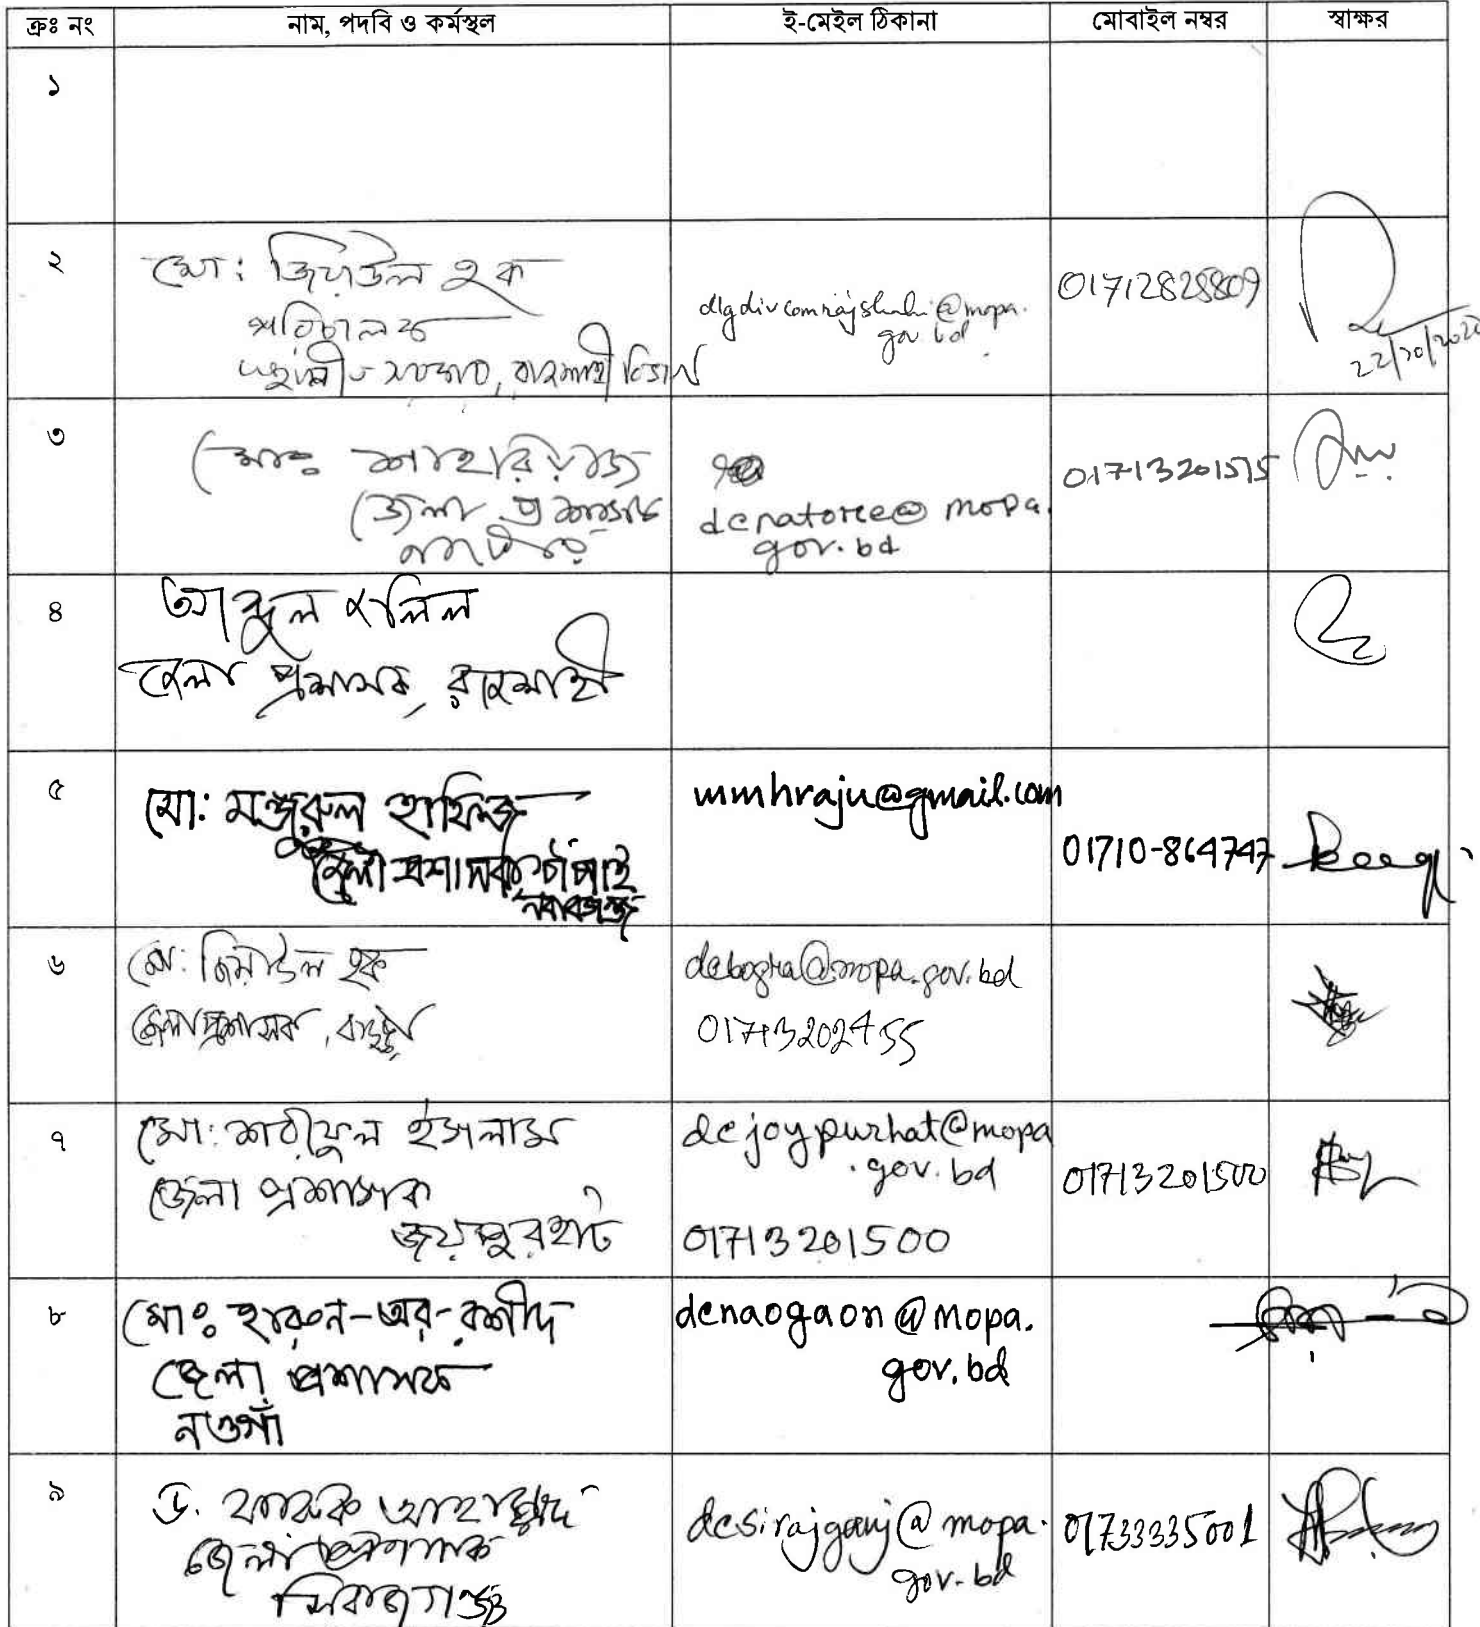 ক্রঃ নং নাম, পদবি ও কর্মস্থল ই-মেইল ঠিকানা মোবাইল নম্বর স্বাক্ষর
১
২ মো: জিয়াউল হক
পরিচালক
রাজশাহী বিভাগ
gov bd
01712825809
22/10/2020
৩ মোঃ শাহরিয়াজ
জেলা প্রশাসক
নাটোর
dcnatore@mopa.
gov.bd
01713201575
৪ আব্দুল জলিল
জেলা প্রশাসক, রাজশাহী
৫ মো: মঞ্জুরুল হাফিজ
জেলা প্রশাসক চাঁপাই
নবাবগঞ্জ
mmhraju@gmail.com
01710-864747
৬ মো: জিয়াউল হক
জেলা প্রশাসক, বগুড়া
dcbogra@mopa.gov.bd
01713202455
৭ মো: শরীফুল ইসলাম
জেলা প্রশাসক
জয়পুরহাট
dcjoypurhat@mopa
.gov.bd
01713201500
01713201500
৮ মোঃ হারুন-অর-রশীদ
জেলা প্রশাসক
নওগাঁ
dcnaogaon@mopa.
gov.bd
৯ ড. ফারুক আহাম্মদ
জেলা প্রশাসক
সিরাজগঞ্জ
dcsirajganj@mopa.
gov.bd
01733335001